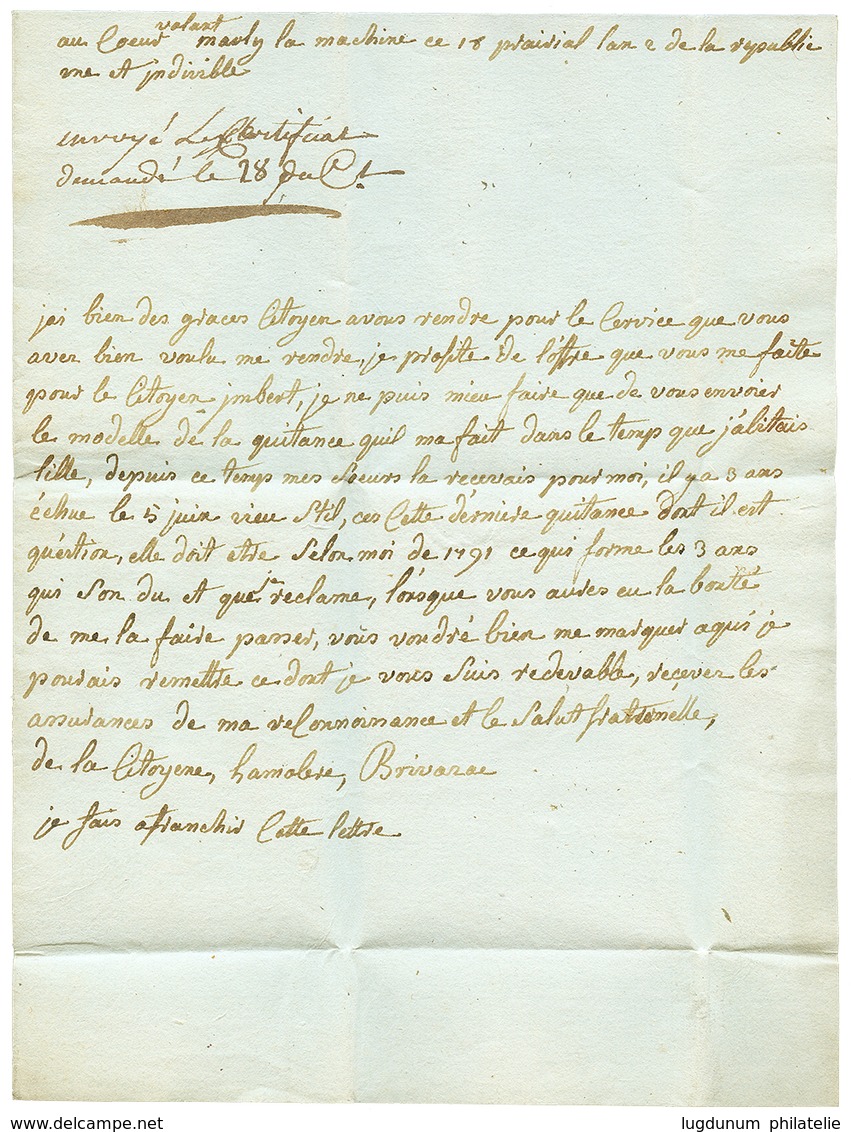 au Coeur volant marly la machine ce 18 prairial lan 2 de la republic
une et jndivible
envoyé Le Certificat
demandé le 28 du Ct
jai bien des graces Citoyen avous rendre pour le Cervice que vous
aver bien voulu me rendre, je profite de loffre que vous me faite
pour le Citoyen jmbert, je ne puis mieu faire que de vous envoier
le modelle de la quitance quil ma fait dans le temp que j'abitais
lille, depuis ce temp mes soeurs la recevais pour moi, il y a 3 ans
échue le 5 juin vieu stil, ces Cette derniere quitance dont il est
question, elle doit etre selon moi de 1791 ce qui forme les 3 ans
qui son du et que je reclame, lorsque vous aures eu la bonté
de me la faire passer, vous voudré bien me marquer aqui je
pourais remettre ce dont je vous suis redevable, recever les
assurances de ma reConnoissance et le salut fraternelle,
de la Citoyene, hamolere, Brivazac
je fais afranchir Cette lettre
www.delcampe.net
lugdunum philatelie